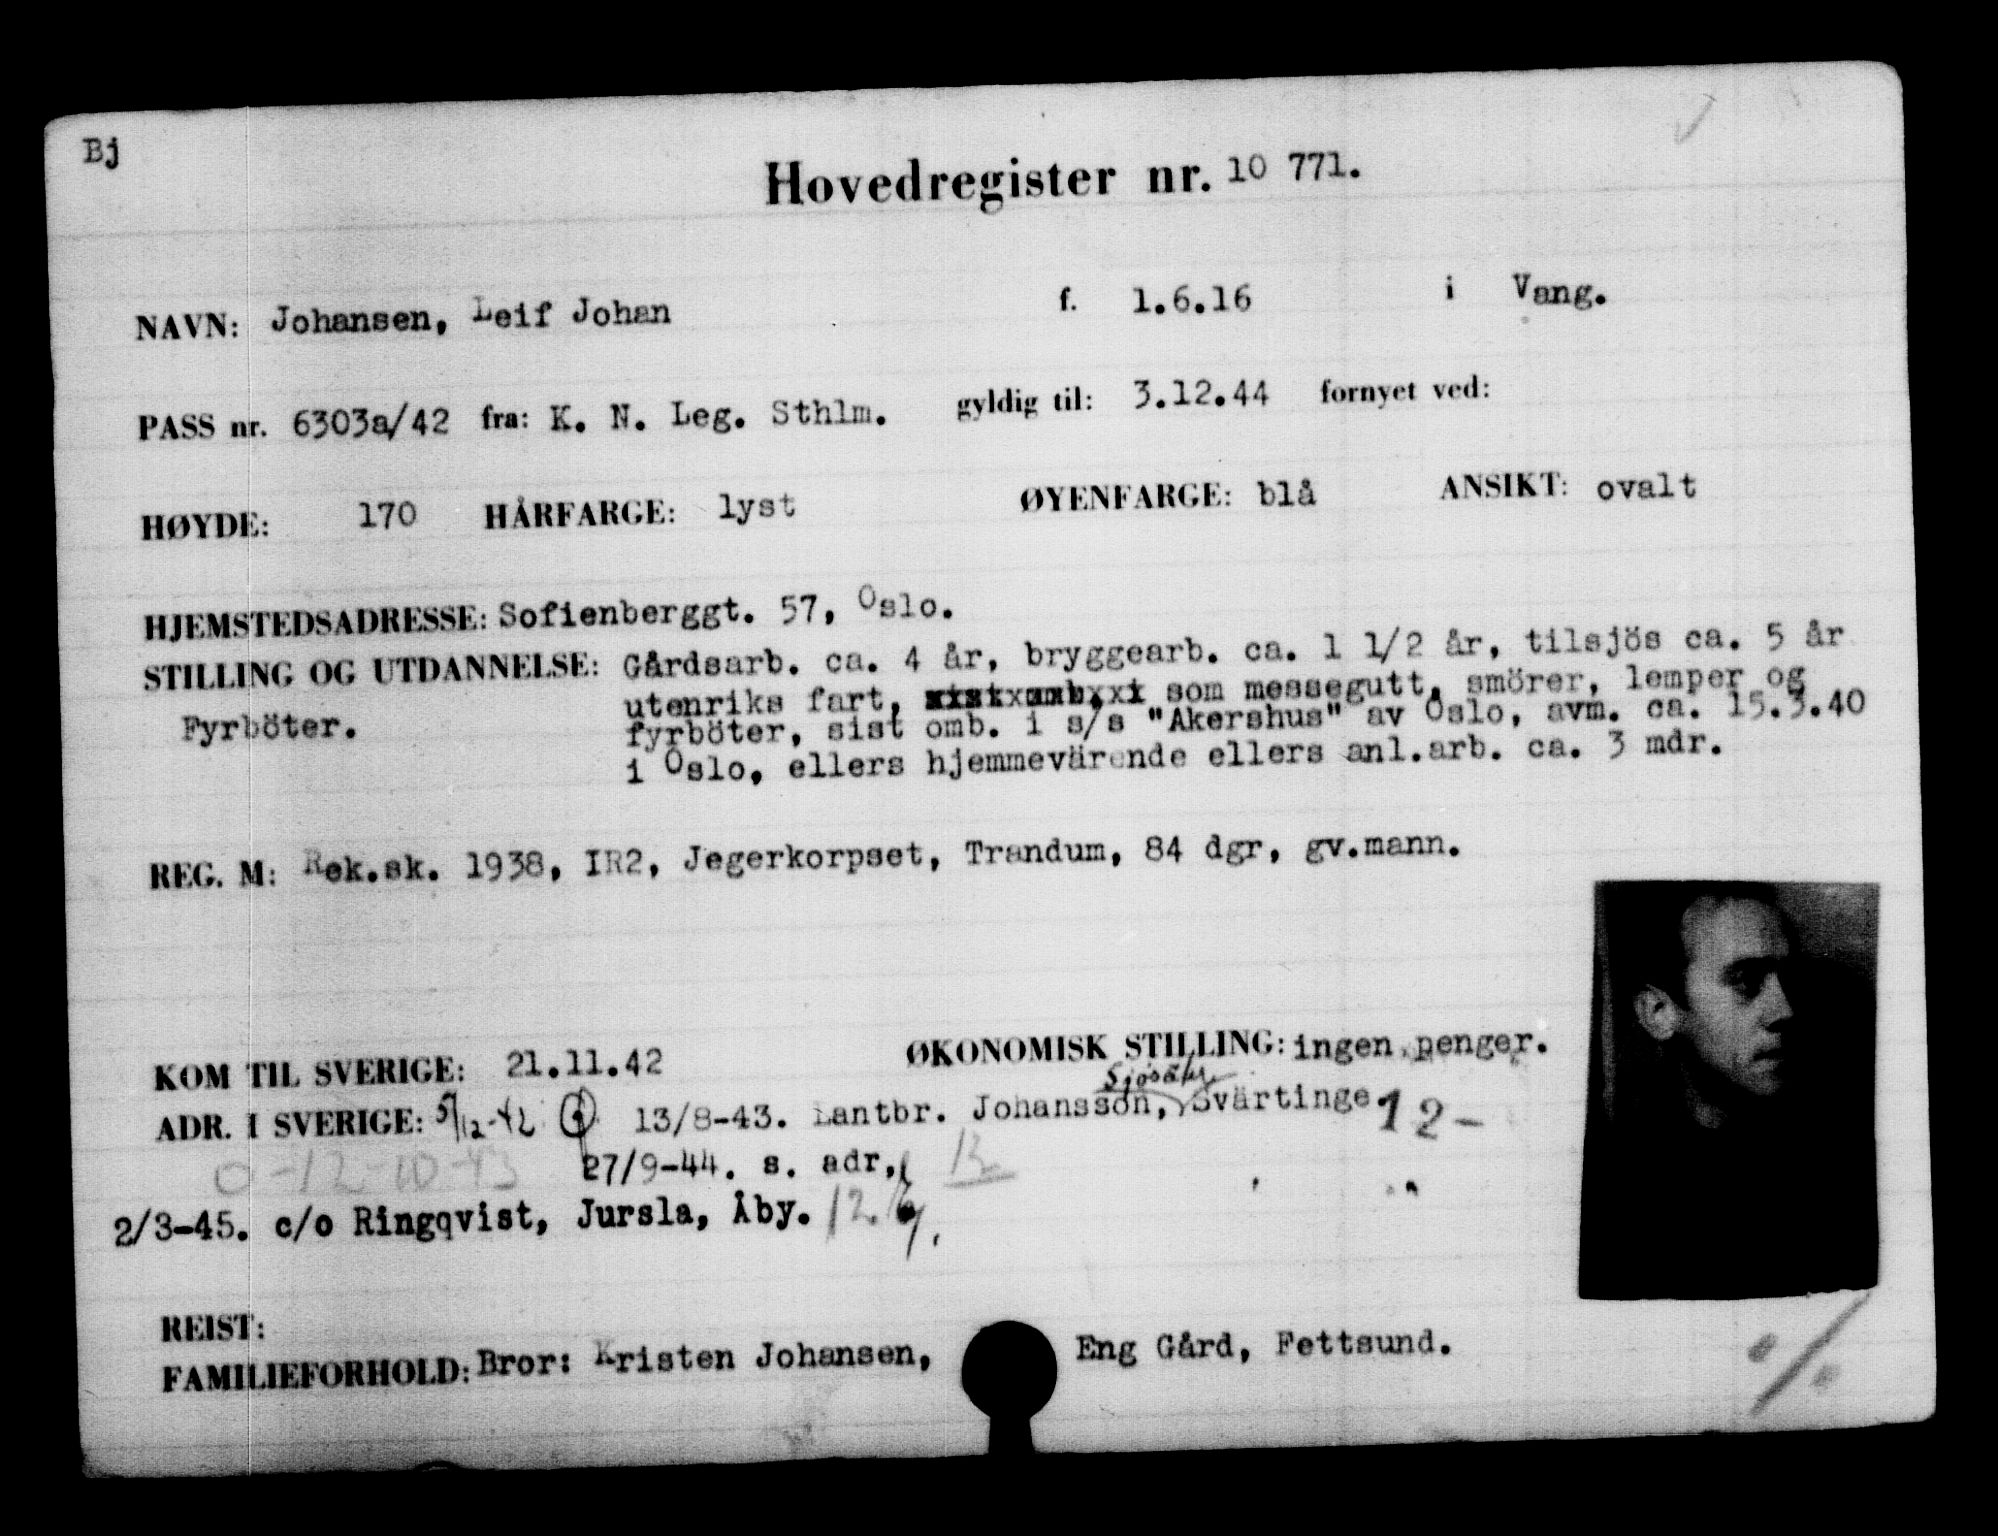 Bj
Hovedregister nr. 10 771.
NAVN: Johansen, Leif Johan f. 1.6.16 i Vang.
PASS nr. 6303a/42 fra: K. N. Leg. Sthlm. gyldig til: 3.12.44 fornyet ved:
HØYDE: 170 HÅRFARGE: lyst ØYENFARGE: blå ANSIKT: ovalt
HJEMSTEDSADRESSE: Sofienberggt. 57, Oslo.
STILLING OG UTDANNELSE: Gårdsarb. ca. 4 år, bryggearb. ca. 1 1/2 år, tilsjös ca. 5 år
utenriks fart, som messegutt, smörer, lemper og
Fyrböter. fyrböter, sist omb. i s/s "Akershus" av Oslo, avm. ca. 15.3.40
i Oslo, ellers hjemmevärende ellers anl.arb. ca. 3 mdr.
REG. M: Rek.sk. 1938, IR2, Jegerkorpset, Trandum, 84 dgr, gv.mann.
KOM TIL SVERIGE: 21.11.42 ØKONOMISK STILLING: ingen penger.
ADR. I SVERIGE: 5/12-42 13/8-43. Lantbr. Johansson, Svärtinge 12-
0-12-10-43 27/9-44. s. adr,
2/3-45. c/o Ringqvist, Jursla, Åby.
REIST:
FAMILIEFORHOLD: Bror: Kristen Johansen, Eng Gård, Fettsund.